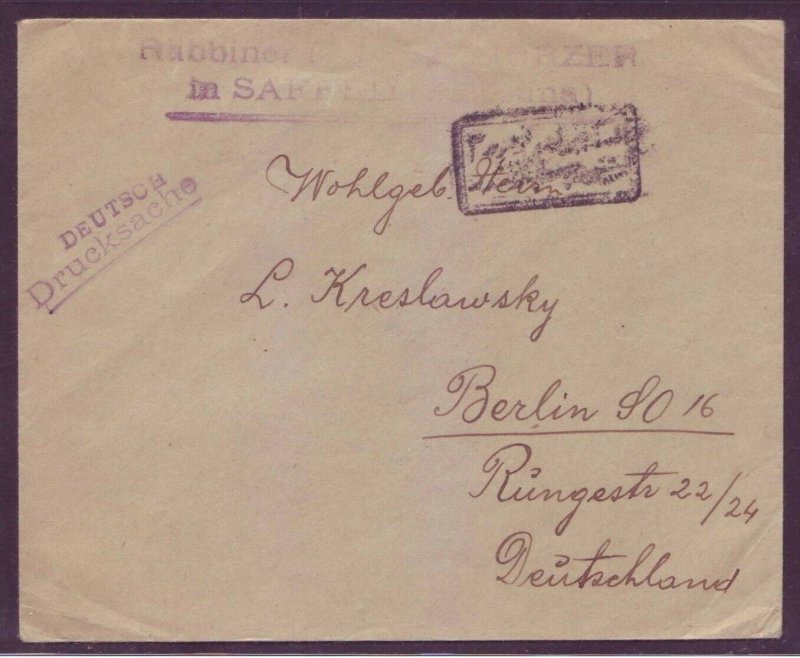 Rabbiner
in SAFED
DEUTSCH
Drucksache
Wohlgeb. Herrn
L. Kreslawsky
Berlin SO 16
Rüngestr 22/24
Deutschland